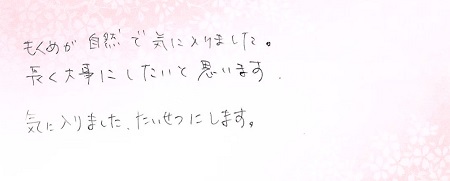 もくめが自然で気に入りました。
長く大事にしたいと思います.
気に入りました、たいせつにします。